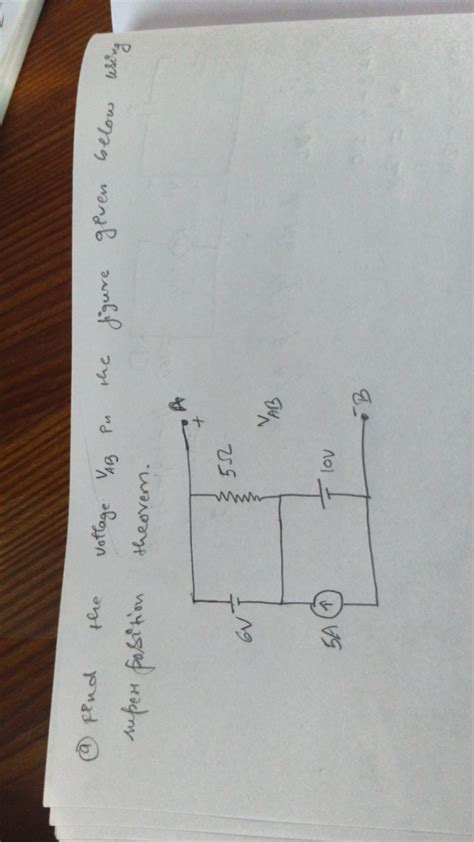 (a) Find the voltage VAB in the figure given below using
super position theorem.
A
+
6V
5Ω
VAB
5A
10V
-
B